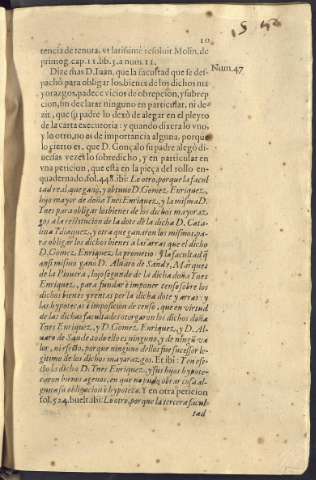 10
tencia de tenuta. et latissimè resoluit Molin. de
primog. cap. 11. lib. 3. a num. 11.
Dize mas D. Iuan, que la facultad que se des-
pachò para obligar los bienes de los dichos ma
yorazgos, padece vicios de obrepcion, y subrep
cion, sin declarar ninguno en particular, ni de-
zir, que su padre lo dexò de alegar en el pleyto
de la carta executoria: y quando dixera lo vno,
y lo otro, no es de importancia alguna, porque
lo cierto es, que D. Gonçalo su padre alegò di-
uersas vezes lo sobredicho, y en particular en
vna peticion, que està en la pieça del rollo en-
quadernado, fol. 448. ibi: Lo otro, porque la facul
tad real, que ganò, y obtuuo D. Gomez Enriquez,
hijo mayor de doña Ines Enriquez, y la misma D.
Ynes para obligar los bienes de los dichos mayoraz-
gos a la restitucion de la dote de la dicha D. Cata-
lina Ydiaquez, y otra que ganaron los mismos, pa-
ra obligar los dichos bienes a las arras que el dicho
D. Gomez Enriquez la prometio. Y la facultad q̃
ansi mismo ganò D. Aluaro de Sande, Marques
de la Piouera, hijo segundo de la dicha doña Ynes
Enriquez, para fundar è imponer censo sobre los
dichos bienes y rentas por la dicha dote y arras: y
las hypotecas è imposicion de censo, que en virtud
de las dichas facultades otorgaron los dichos doña
Ynes Enriquez, y D. Gomez Enriquez, y D. Al-
uaro de Sande todo ello es ninguno, y de ningũ va-
lor, ni efecto, porque ninguno dellos fue sucessor le-
gitimo de los dichos mayorazgos. Et ibi: Y en efe-
cto la dicha D. Ynes Enriquez, y sus hijos hypote-
caron bienes agenos, en que no pudo obrar cosa al-
guna su obligacion è hypoteca. Y en otra peticion
fol. 524. buelt. ibi: Lo otro, porque la tercera facul-
tad
Num. 47